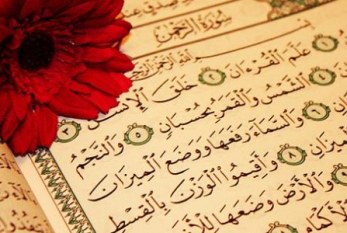 سُورَةُ الرَّحْمَٰنِ
عَلَّمَ الْقُرْءَانَ ٢ خَلَقَ الْإِنسَٰنَ ٣
الشَّمْسُ وَالْقَمَرُ بِحُسْبَانٍ ٥ وَالنَّجْمُ
وَالسَّمَآءَ رَفَعَهَا وَوَضَعَ الْمِيزَانَ
ٱلْمِيزَانِ ٨ وَأَقِيمُوا الْوَزْنَ بِالْقِسْطِ
وَالْأَرْضَ وَضَعَهَا
الْأَكْمَامِ